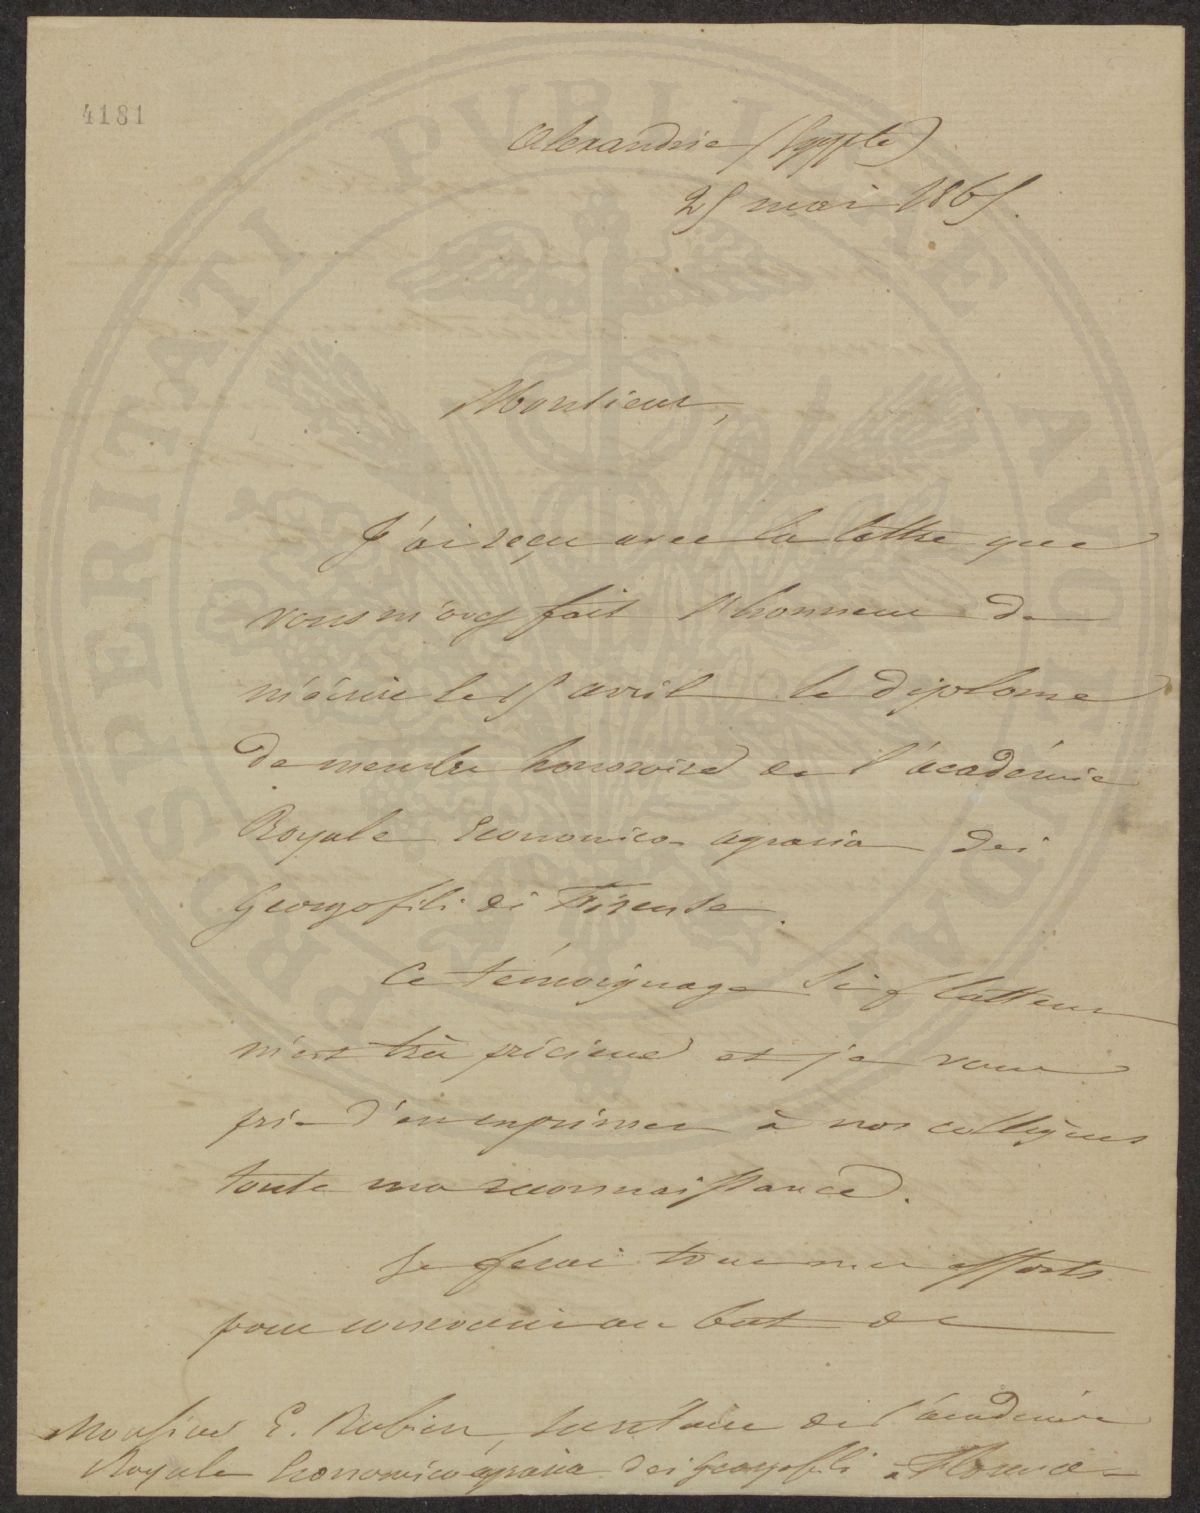 4181
Alexandrie (Egypte)
25 mai 1865.
Monsieur,
J'ai reçu avec la lettre que
vous m'avez fait l'honneur de
m'écrire le 15 avril le diplome
de membre honoraire de l'académie
Royale Economico-agraria dei
Georgofili di Firenze.
Ce témoignage si flatteur
m'est très précieux et je vous
prie d'en exprimer à nos collègues
toute ma reconnaissance.
Je ferai tous mes efforts
pour concourir au but de
Monsieur E. Rubieri, secrétaire de l'académie
Royale Economico agraria dei Georgofili à Florence
PROSPERITATI PVBLICAE AVGENDAE